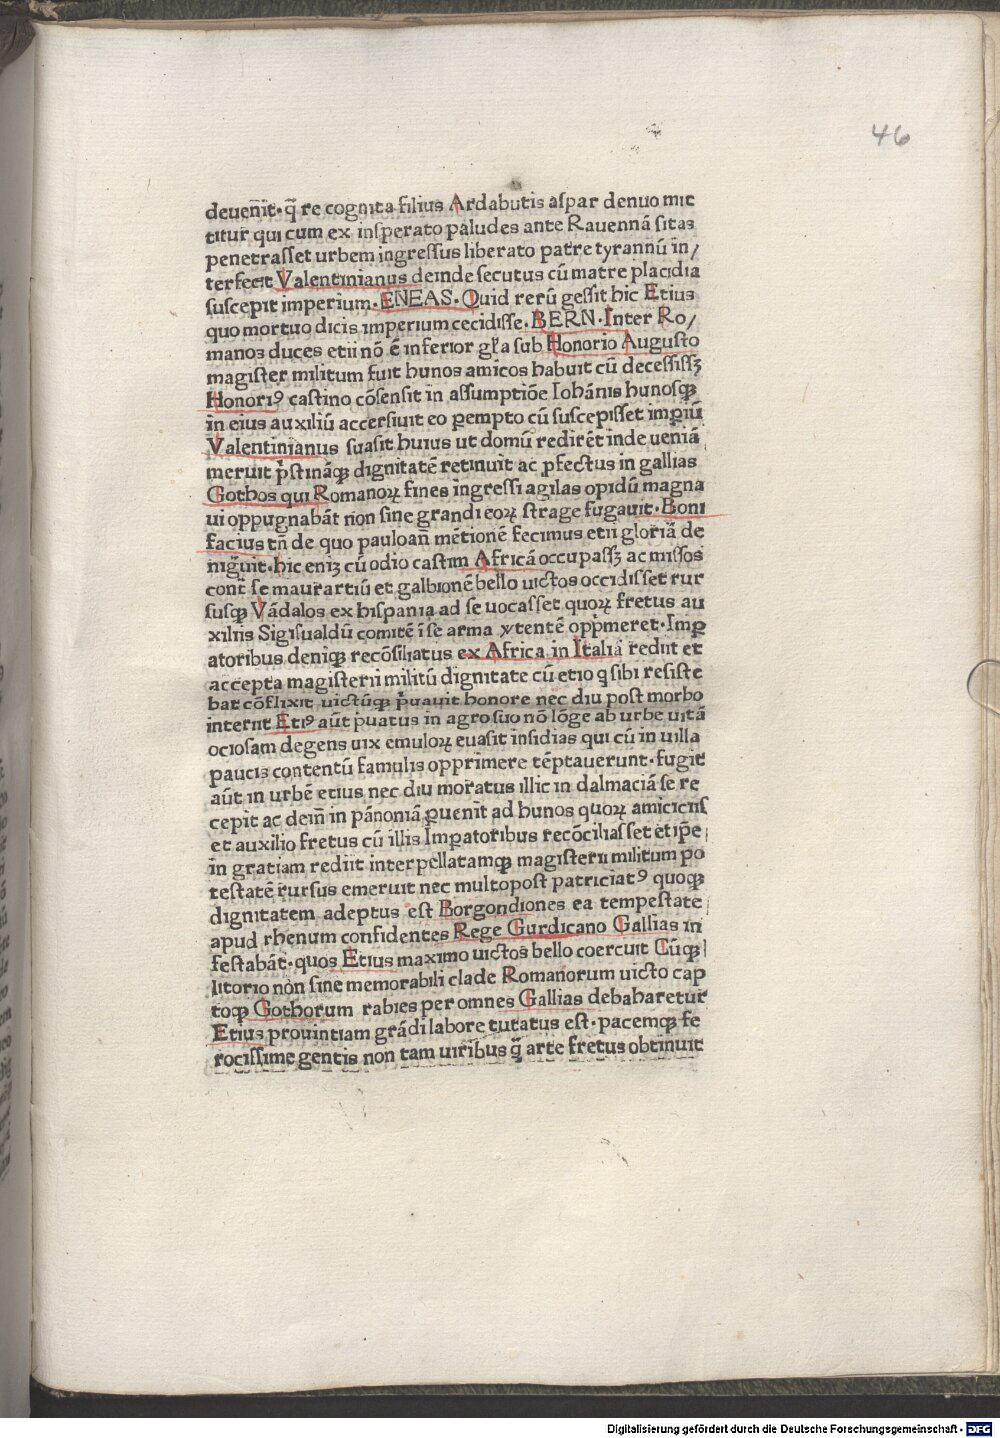 46
deuen̄it·q̄ re cognita filius Ardabutis aspar denuo mit
titur qui cum ex insperato paludes ante Rauennā sitas
penetrasset urbem ingressus liberato patre tyrannū in/
terfecit Valentinianus deinde secutus cū matre placidia
suscepit imperium·ENEAS·Quid rerū gessit hic Etius
quo mortuo dicis imperium cecidisse·BERN·Inter Ro/
manos duces etii nō ē inferior gl̄a sub Honorio Augusto
magister militum fuit hunos amicos habuit cū decessissꝫ
Honoriꝰ castino cōsensit in assumptiōe Iohānis hunosqꝫ
in eius auxiliū accersiuit eo ꝑempto cū suscepisset imꝑiū
Valentinianus suasit huius ut domū redirēt inde ueniā
meruit p̄stināqꝫ dignitatē retinuit ac ꝓfectus in gallias
Gothos qui Romanoꝝ fines ingressi agilas opidū magna
ui oppugnabāt non sine grandi eoꝝ strage fugauit·Boni
facius tn̄ de quo pauloan̄ mētionē fecimus etii gloriā de
nigr̄uit·hic eniꝫ cū odio castini Africā occupassꝫ ac missos
cont̄ se maurartiū et galbionē bello uictos occidisset rur
susqꝫ Vādalos ex hispania ad se uocasset quoꝝ fretus au
xiliis Sigisualdū comitē ī se arma ytentē opp̄meret·Imꝑ
atoribus deniqꝫ recōsiliatus ex Africa in Italiā rediit et
accepta magisterii militū dignitate cū etio q̄ sibi resiste
bat cōflixit uictūqꝫ p̄uauit honore nec diu post morbo
interiit Etiꝰ aūt p̄uatus in agro suo nō lōge ab urbe uitā
ociosam degens uix emuloꝝ euasit insidias qui cū in uilla
paucis contentū famulis opprimere tēptauerunt·fugit
aūt in urbē etius nec diu moratus illic in dalmaciā se re
cepit ac dein̄ in pānoniā ꝑuenit ad hunos quoꝝ amiciciis
et auxilio fretus cū illis Imꝑatoribus recōciliasset et ip̄e
in gratiam rediit interpellatamqꝫ magisterii militum po
testatē rursus emeruit nec multopost patriciatꝰ quoqꝫ
dignitatem adeptus est Borgondiones ea tempestate
apud rhenum confidentes Rege Gurdicano Gallias in
festabāt·quos Etius maximo uictos bello coercuit Cūqꝫ
litorio non sine memorabili clade Romanorum uicto cap
toqꝫ Gothorum rabies per omnes Gallias debaharetur
Etius prouintiam grādi labore tutatus est·pacemqꝫ fe
rocissime gentis non tam uiribus q̄ arte fretus obtinuit
Digitalisierung gefördert durch die Deutsche Forschungsgemeinschaft - DFG